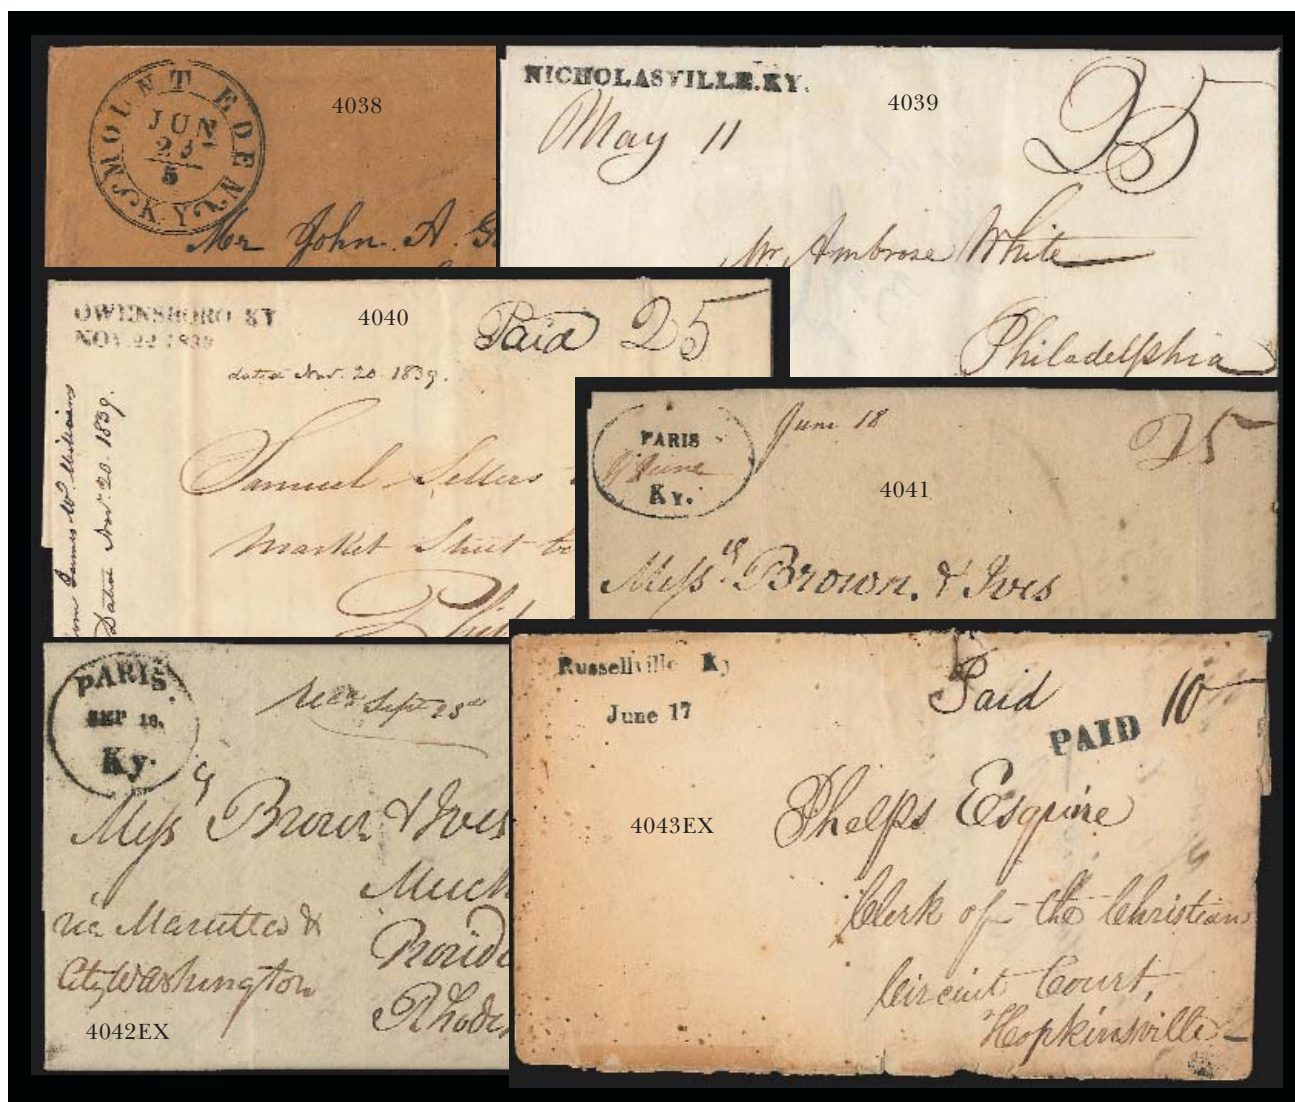 MOUNT EDEN
JUN
23
5
KY
4038
Mr John. A.
NICHOLASVILLE.KY.
May 11
4039
25
Mr. Ambrose White
Philadelphia
OWENSBORO KY
NOV. 22 1839
4040
Paid 25
dated Nov. 20. 1839.
James W.
Dated Nov. 20. 1839.
Samuel Sellers
Market Street
PARIS
June
Ky.
June 18
25
4041
Messrs. Brown. & Ives
PARIS.
SEP 18.
Ky.
Sept 25th
Messrs Brown & Ives
via Marietta &
City Washington
4042EX
Russellville Ky
June 17
Paid
PAID 10
4043EX
Phelps Esquire
Clerk of the Christian
Circuit Court,
Hopkinsville